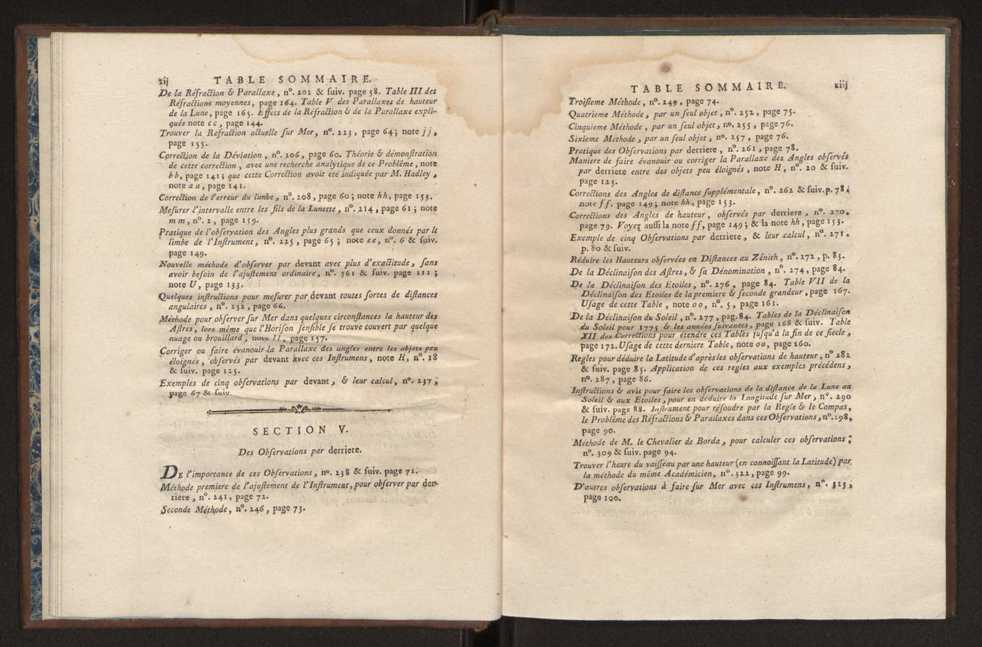 xij TABLE SOMMAIRE.
De la Réfraction & Parallaxe, n°. 201 & suiv. page 58. Table III des
Réfractions moyennes, page 164. Table V des Parallaxes de hauteur
de la Lune, page 165. Effets de la Réfraction & de la Parallaxe expli-
quée note cc, page 144.
Trouver la Réfraction actuelle sur Mer, n°. 223, page 64; note jj,
page 155.
Correction de la Déviation, n°. 206, page 60. Théorie & démonstration
de cette correction, avec une recherche analytique de ce Problême, note
bb, page 141; que cette Correction avoit été indiquée par M. Hadley,
note aa, page 141.
Correction de l'erreur du limbe, n°. 208, page 60; note hh, page 153.
Mesurer l'intervalle entre les fils de la Lunette, n°. 214, page 61; note
mm, n°. 2, page 159.
Pratique de l'observation des Angles plus grands que ceux donnés par le
limbe de l'Instrument, n°. 225, page 65; note xx, n°. 6 & suiv.
page 149.
Nouvelle méthode d'observer par devant avec plus d'exactitude, sans
avoir besoin de l'ajustement ordinaire, n°. 361 & suiv. page 111;
note U, page 133.
Quelques instructions pour mesurer par devant toutes sortes de distances
angulaires, n°. 232, page 66.
Méthode pour observer sur Mer dans quelques circonstances la hauteur des
Astres, lors même que l'Horison sensible se trouve couvert par quelque
nuage ou brouillard, note ll, page 157.
Corriger ou faire évanouir la Parallaxe des angles entre les objets peu
éloignés, observés par devant avec ces Instrumens, note H, n°. 18
& suiv. page 125.
Exemples de cinq observations par devant, & leur calcul, n°. 237,
page 67 & suiv.
SECTION V.
Des Observations par derriere.
DE l'importance de ces Observations, n°. 238 & suiv. page 71.
Méthode premiere de l'ajustement de l'Instrument, pour observer par der-
riere, n°. 241, page 72.
Seconde Méthode, n°. 246, page 73.
TABLE SOMMAIRE. xiij
Troisieme Méthode, n°. 249, page 74.
Quatrieme Méthode, par un seul objet, n°. 252, page 75.
Cinquieme Méthode, par un seul objet, n°. 255, page 76.
Sixieme Méthode, par un seul objet, n°. 257, page 76.
Pratique des Observations par derriere, n°. 261, page 78.
Maniere de faire évanouir ou corriger la Parallaxe des Angles observés
par derriere entre des objets peu éloignés, note H, n°. 20 & suiv.
page 125.
Corrections des Angles de distance supplémentale, n°. 262 & suiv. p. 78;
note ff, page 149; note hh, page 153.
Corrections des Angles de hauteur, observés par derriere, n°. 270,
page 79. Voyez aussi la note ff, page 149; & la note hh, page 153.
Exemple de cinq Observations par derriere, & leur calcul, n°. 271,
p. 80 & suiv.
Réduire les Hauteurs observées en Distances au Zénith, n°. 272, p. 83.
De la Déclinaison des Astres, & sa Dénomination, n°. 274, page 84.
De la Déclinaison des Etoiles, n°. 276, page 84. Table VII de la
Déclinaison des Etoiles de la premiere & seconde grandeur, page 167.
Usage de cette Table, note oo, n°. 5, page 161.
De la Déclinaison du Soleil, n°. 277, pag. 84. Tables de la Déclinaison
du Soleil pour 1775 & les années suivantes, page 168 & suiv. Table
XII des Corrections pour étendre ces Tables jusqu'à la fin de ce siecle,
page 172. Usage de cette derniere Table, note oo, page 160.
Regles pour déduire la Latitude d'après les observations de hauteur, n° 282
& suiv. page 85. Application de ces regles aux exemples précédens,
n°. 287, page 86.
Instructions & avis pour faire les observations de la distance de la Lune au
Soleil & aux Etoiles, pour en déduire la Longitude sur Mer, n°. 290
& suiv. page 88. Instrument pour résoudre par la Regle & le Compas,
le Problême des Réfractions & Parallaxes dans ces Observations, n°. 298,
page 90.
Méthode de M. le Chevalier de Borda, pour calculer ces observations;
n°. 309 & suiv. page 94.
Trouver l'heure du vaisseau par une hauteur (en connoissant la Latitude) par
la méthode du même Académicien, n°. 322, page 99.
D'autres observations à faire sur Mer avec ces Instrumens, n°. 325,
page 100.